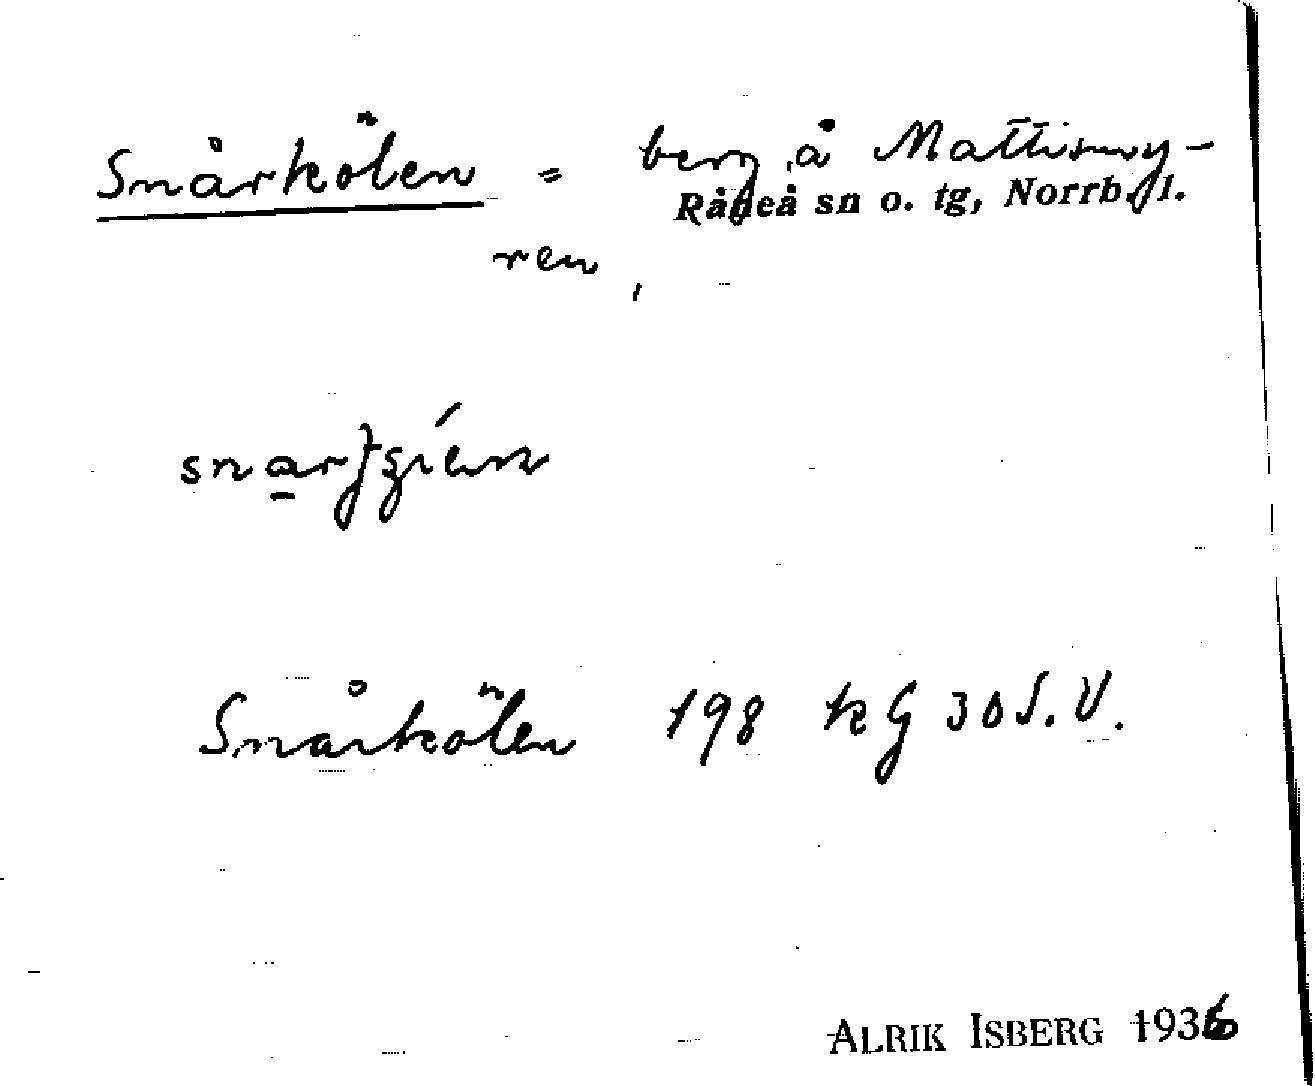 Snårkölen = berg å Mattismy-
Råneå sn o. tg, Norrb. l.
ren,
Snårkölen 198 kg 30 S.V.
ALRIK ISBERG 1936